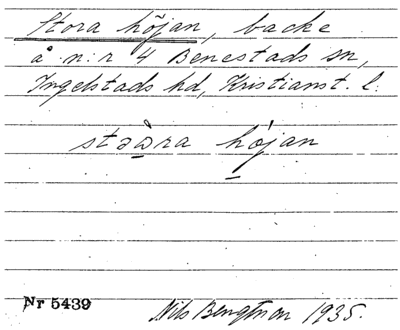 Stora höjan, backe
å n:r 4 Benestads sn,
Ingelstads hd, Kristianst. l.
stəὼra hójan
Nr 5439
Nils Bengtson 1935.